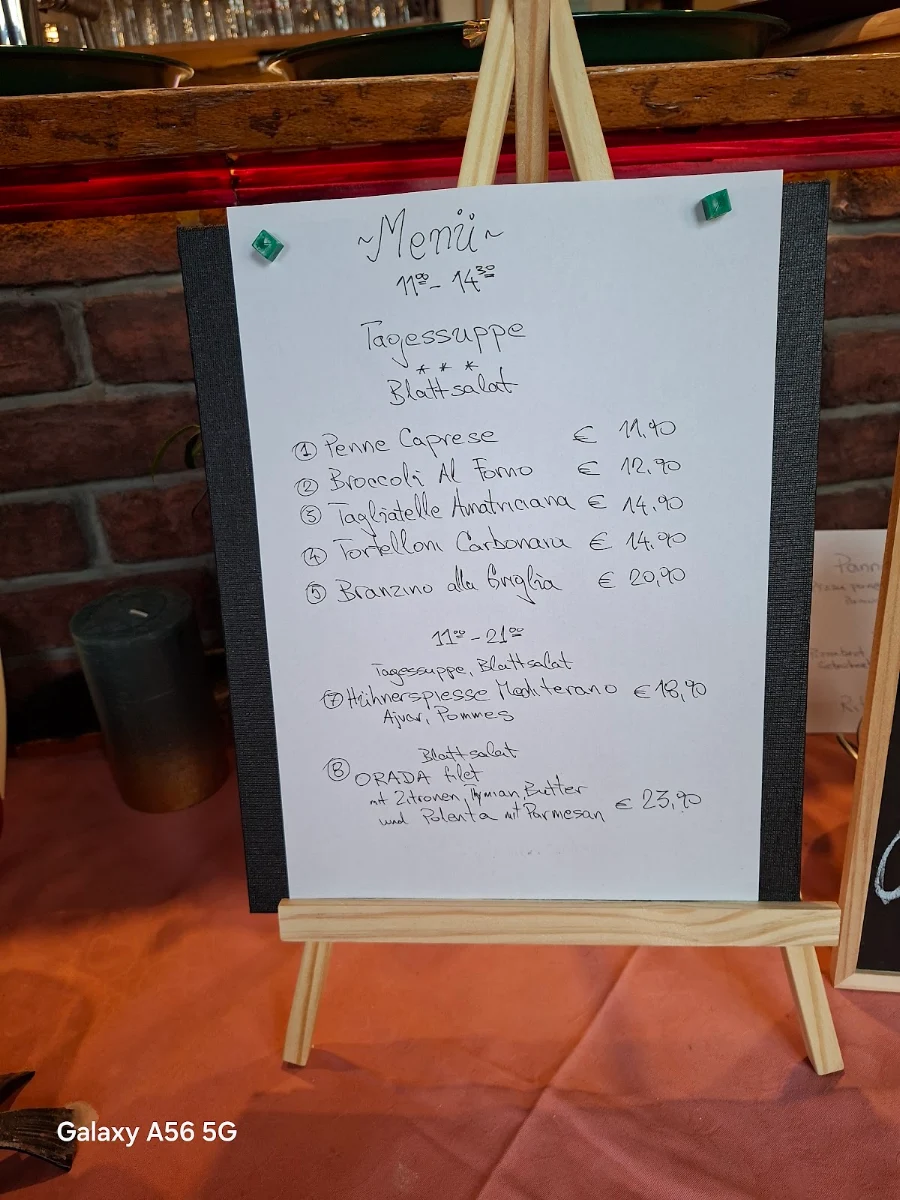 ~Menü~
11⁰⁰ - 14³⁰
Tagessuppe
* * *
Blattsalat
① Penne Caprese € 11,90
② Broccoli Al Forno € 12,90
③ Tagliatelle Amatriciana € 14,90
④ Tortelloni Carbonara € 14,90
⑤ Branzino alla Griglia € 20,90
11⁰⁰ - 21⁰⁰
Tagessuppe, Blattsalat
⑦ Hühnerspiesse Mediterano € 18,90
Ajvar, Pommes
Blattsalat
⑧ ORADA filet
mit Zitronen, Tymian, Butter
und Polenta mit Parmesan € 23,90
Galaxy A56 5G